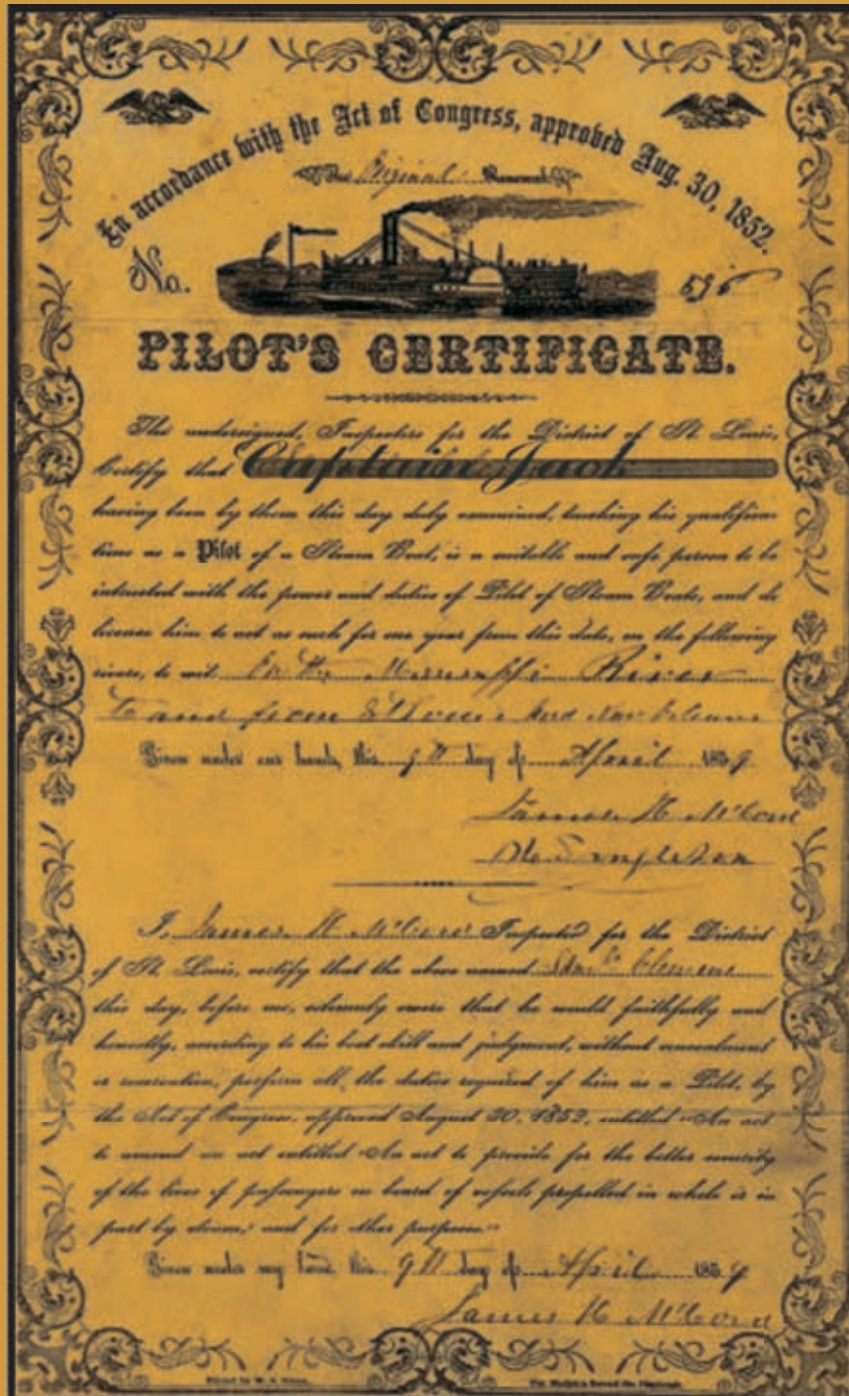 In accordance with the Act of Congress, approved Aug. 30, 1852.
Original Renewal
No.
PILOT'S CERTIFICATE.
The undersigned, Inspectors for the District of St. Louis,
Certify that Captain Jack
having been by them this day duly examined, touching his qualifica-
tions as a Pilot of a Steam Boat, is a suitable and safe person to be
intrusted with the power and duties of Pilot of Steam Boats, and do
license him to act as such for one year from this date, on the following
rivers, to wit On the Mississippi River
To and from St Louis and New Orleans
Given under our hands, this 9th day of April 1859
James H McCord
Singleton
I, James H McCord Inspector for the District
of St. Louis, certify that the above named Clemens
this day, before me, solemnly swore that he would faithfully and
honestly, according to his best skill and judgment, without concealment
or reservation, perform all the duties required of him as a Pilot, by
the Act of Congress, approved August 30, 1852, entitled "An act
to amend an act entitled "An act to provide for the better security
of the lives of passengers on board of vessels propelled in whole or in
part by steam, and for other purposes."
Given under my hand, this 9th day of April 1859
James H McCord